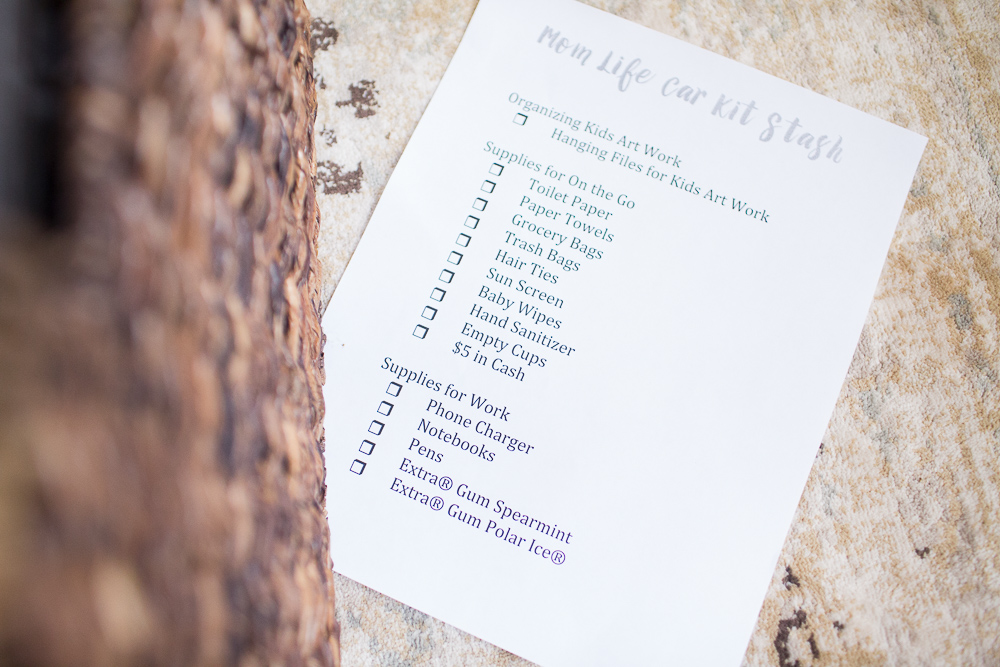 Mom Life Car Kit Stash
Organizing Kids Art Work
Hanging Files for Kids Art Work
Supplies for On the Go
Toilet Paper
Paper Towels
Grocery Bags
Trash Bags
Hair Ties
Sun Screen
Baby Wipes
Hand Sanitizer
Empty Cups
$5 in Cash
Supplies for Work
Phone Charger
Notebooks
Pens
Extra® Gum Spearmint
Extra® Gum Polar Ice®